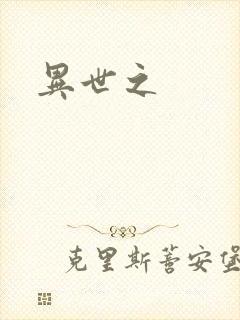 異世之
克里斯蒼安堡